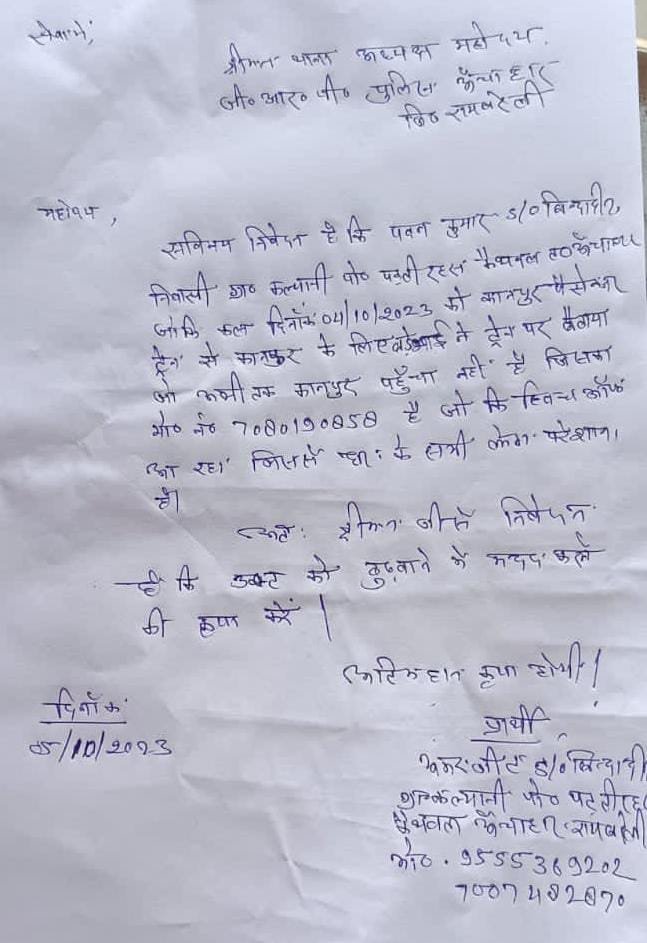 सेवामें,
श्रीमान थाना अध्यक्ष महोदय.
जी० आर० पी० पुलिस ऊँचाहार
जि० रायबरेली
महोदय,
सविनय निवेदन है कि पवन कुमार S/O बिन्दादीन,
निवासी ग्रा० कल्यानी पो० पट्टी रहस कैथवल ऊँचाहार
जोकि कल दिनाँक 04/10/2023 को कानपुर पैसेन्जर
ट्रेन से कानपुर के लिए बड़े भाई ने ट्रेन पर बैठाया
जो अभी तक कानपुर पहुँचा नहीं है जिसका
मो० नं० 7080190858 है जो कि स्विच ऑफ
आ रहा जिससे घर के सभी लोग परेशान
है।
अतः श्रीमान जी से निवेदन
है कि उक्त को ढुढ़वाने में मदद करने
की कृपा करें |
अति महान कृपा होगी /
दिनाँक
05/10/2023
प्रार्थी
अमरजीत S/O बिन्दादी
ग्रा० कल्यानी पो० पट्टी रह
कैथवल ऊँचाहार रायबरेली
मो० . 9555369202
7007482870